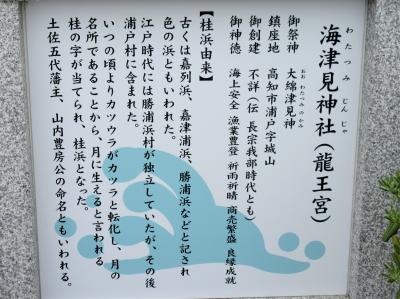 わたつみじんじゃ
海津見神社（龍王宮）
おおわたつみのかみ
御祭神 大綿津見神
鎮座地 高知市浦戸字城山
御創建 不詳（伝 長宗我部時代とも）
御神徳 海上安全 漁業豊登 祈雨祈晴 商売繁盛 良縁成就
【桂浜由来】
古くは嘉列浜、嘉津浦浜、勝浦浜などと記され
色の浜ともいわれた。
江戸時代には勝浦浜村が独立していたが、その後
浦戸村に含まれた。
いつの頃よりカツウラがカツラと転化し、月の
名所であることから、月に生えると言われる
桂の字が当てられ、桂浜となった。
土佐五代藩主、山内豊房公の命名ともいわれる。